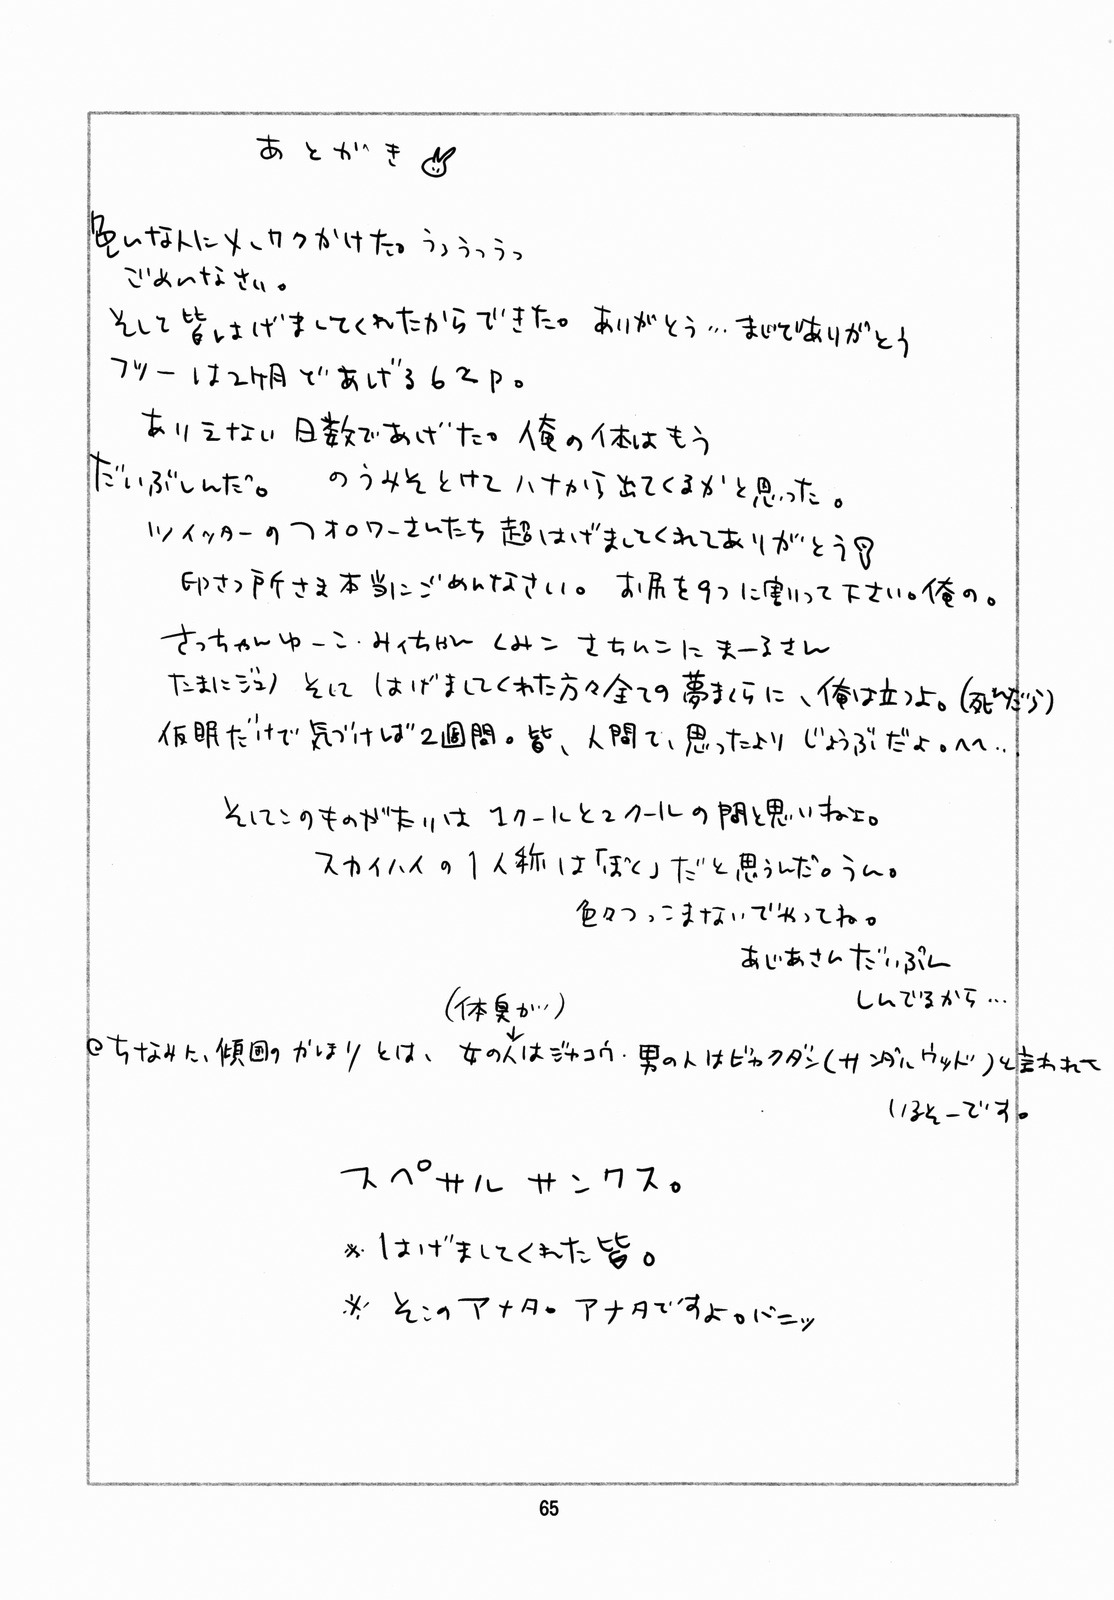 あとがき
色んな人にメーワクかけた。うっうっうっ
ごめんなさい。
そして皆はげましてくれたからできた。ありがとう…まじでありがとう
フツーは2ヶ月であげる62P。
ありえない日数であげた。俺の体はもう
だいぶしんだ。 のうみそとけてハナから出てくるかと思った。
ツイッターのフォロワーさんたち超はげましてくれてありがとう
印さつ所さま本当にごめんなさい。お尻を9つに割って下さい。俺の。
さっちゃんゆーこ・みィちゃん くみこ さちんこに まーるさん
たまにジュノ そして はげましてくれた方々全ての夢まくらに、俺は立つよ。(死んだら)
仮眠だけで気づけば2週間。皆、人間て、思ったより じょうぶだよ。へへ…
そしてこのものがたりは 1クールと2クールの間と思いねェ。
スカイハイの1人称は「ぼく」だと思うんだ。うん。
色々つっこまないでやってね。
あじあさんだいぶん
しんでるから…
(体臭が…)
ちなみに、傾国のかほりとは、女の人はジャコウ・男の人はビャクダン(サンダルウッド)と言われて
いるそーです。
スペサルサンクス。
※はげましてくれた皆。
※そこのアナタ。アナタですよ。バニッ
65